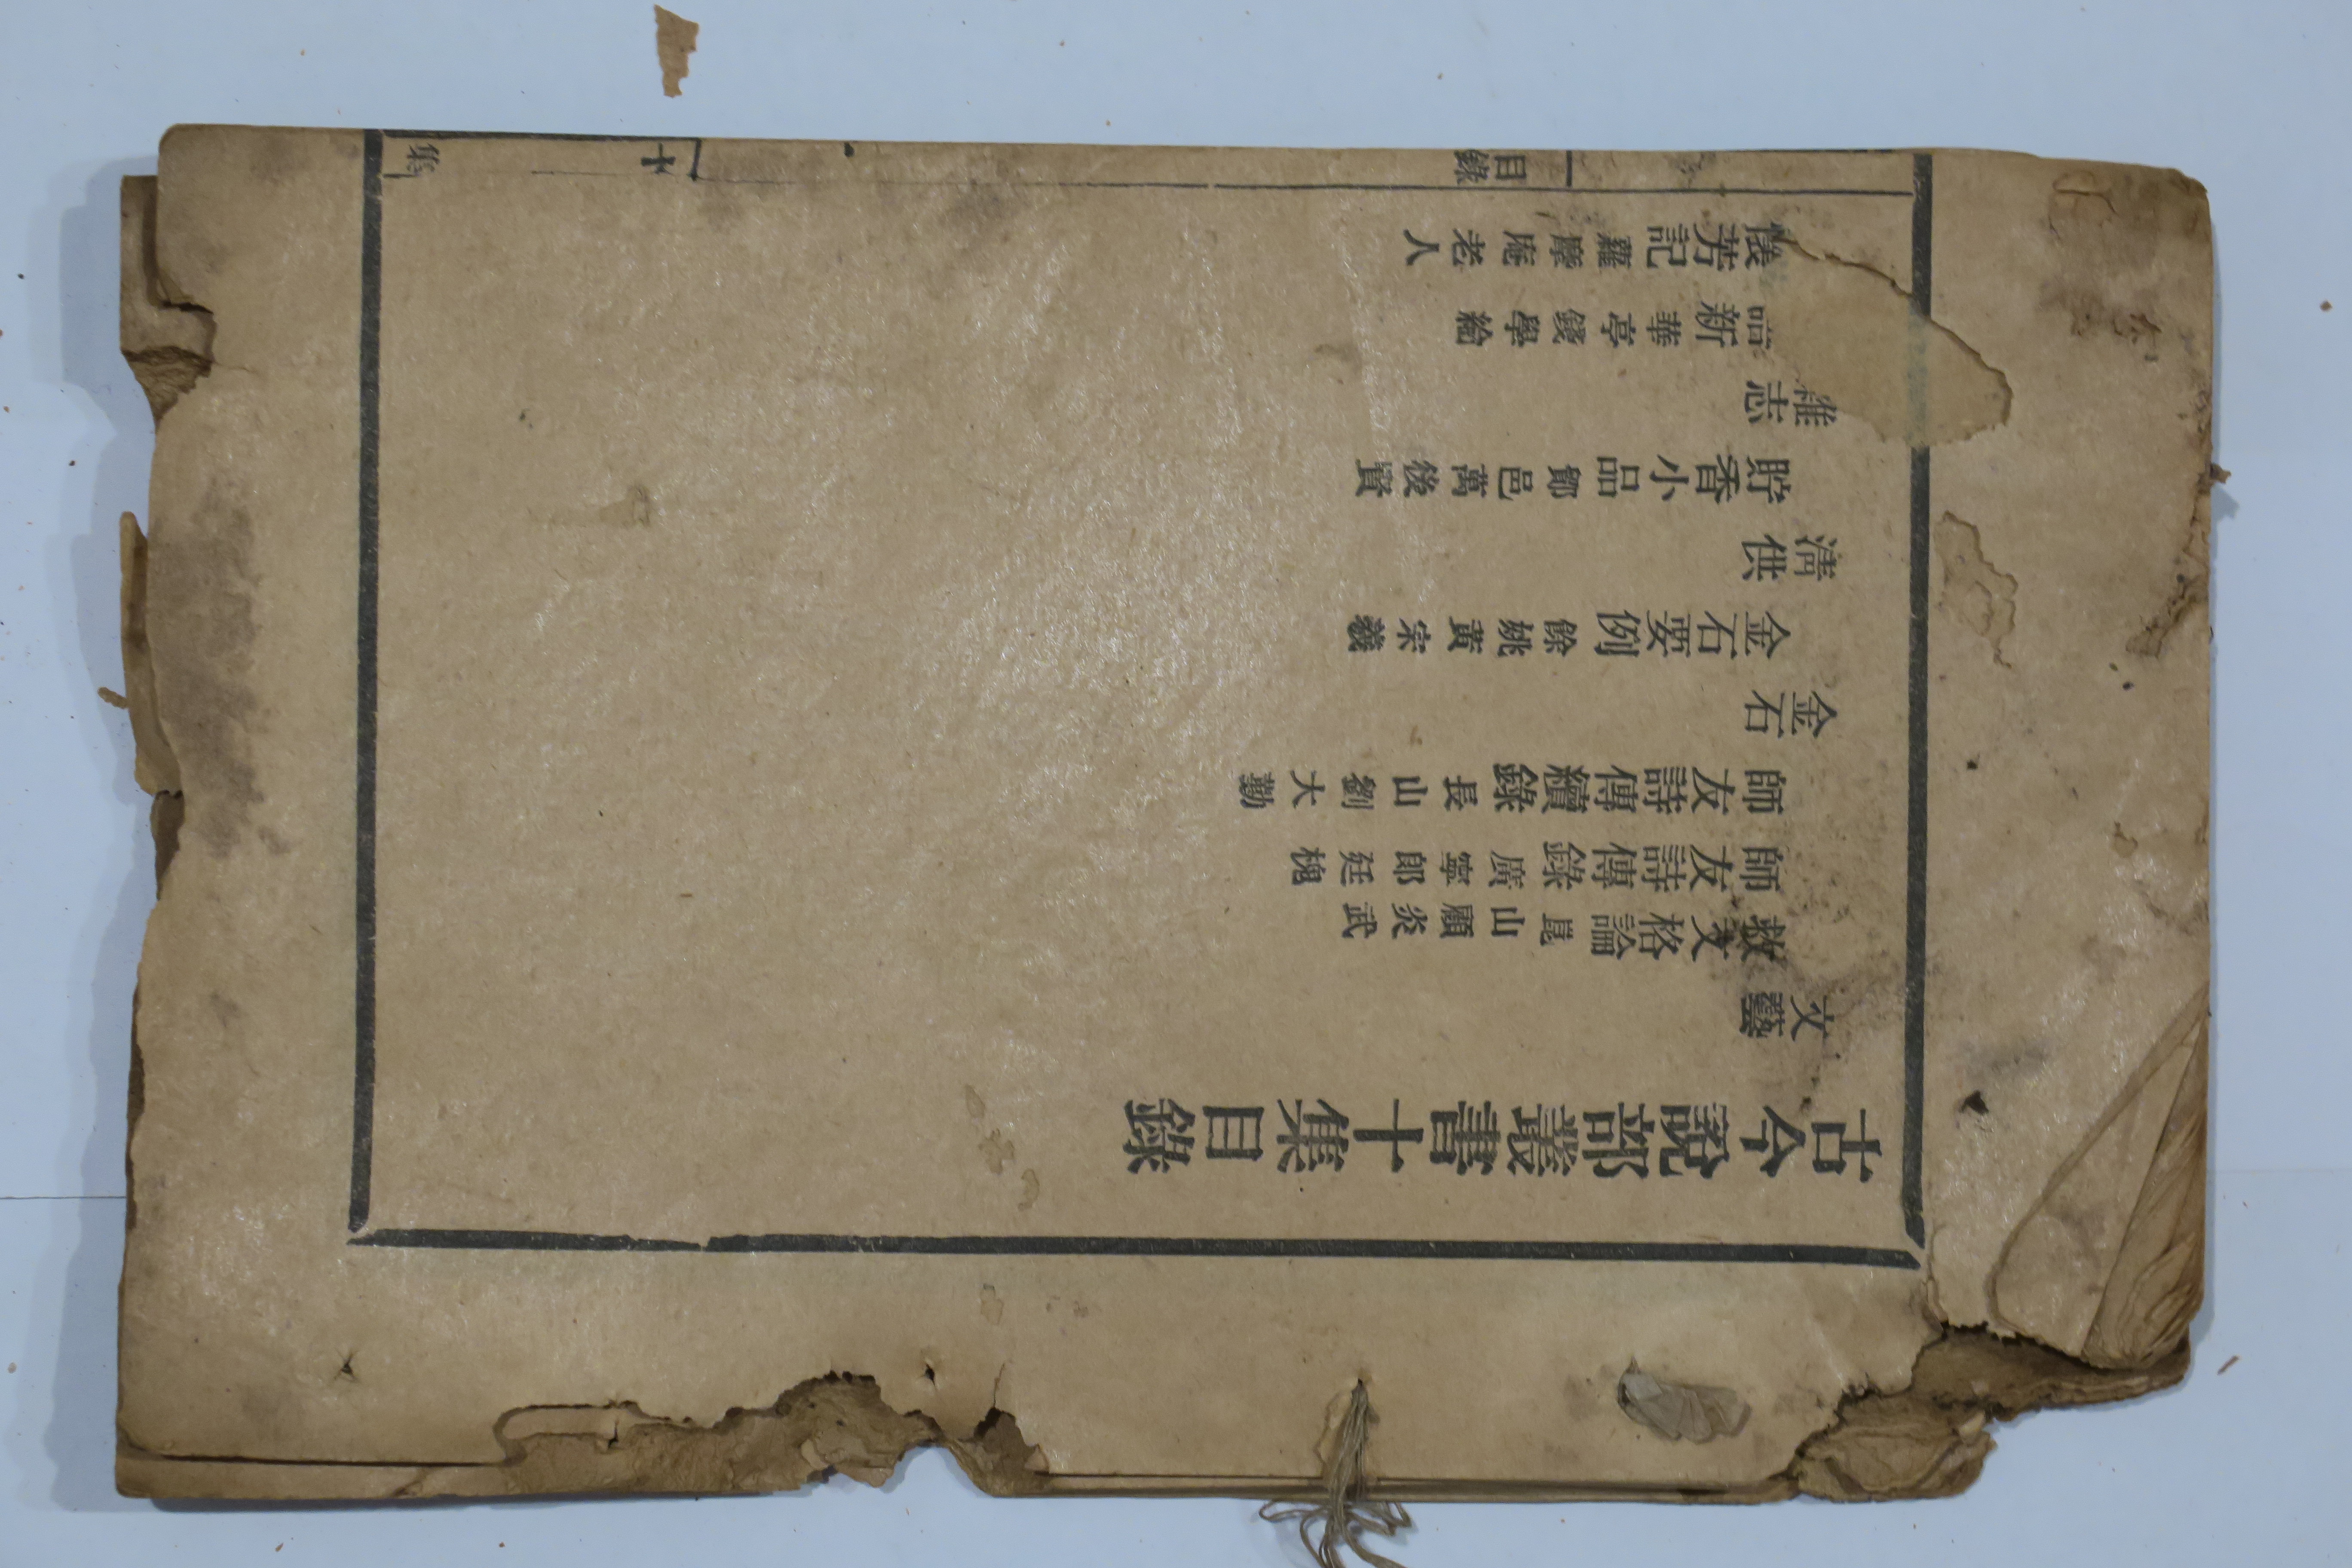 古今說部叢書十集目錄
文藝
救文格論 崑山顧炎武
師友詩傳錄 廣寧郎廷槐
師友詩傳續錄 長山劉大勤
金石
金石要例 餘姚黃宗羲
清供
貯香小品 鄮邑萬後賢
雜志
語新 華亭錢學綸
懷芳記 蘿摩庵老人
目錄
十
集